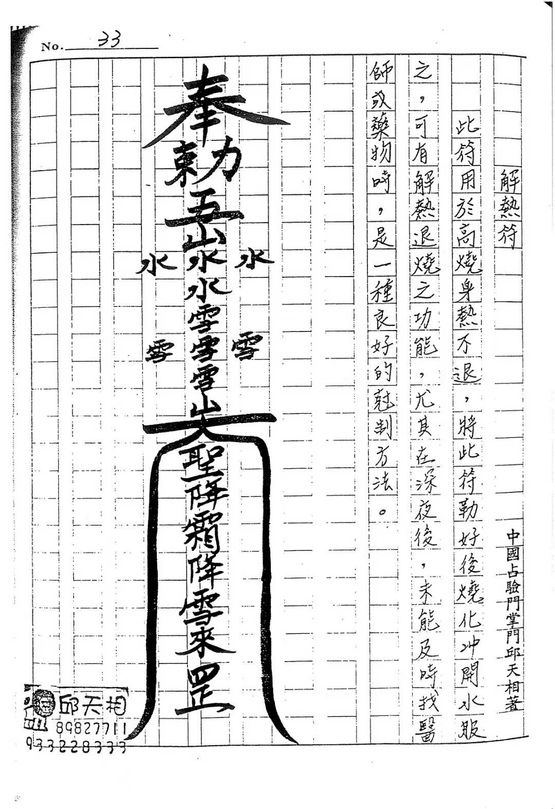 No. 33
解熱符
此符用於高燒身熱不退，將此符勅好後燒化冲開水服
之，可有解熱退燒之功能，尤其在深夜後，未能及時找醫
師或藥物時，是一種良好的尅制方法。
中國占驗門掌門邱天相著
奉
勅
水水水
水
雪雪雪
雪
雪
聖降霜降雪來罡
邱天相
89827711
933228333